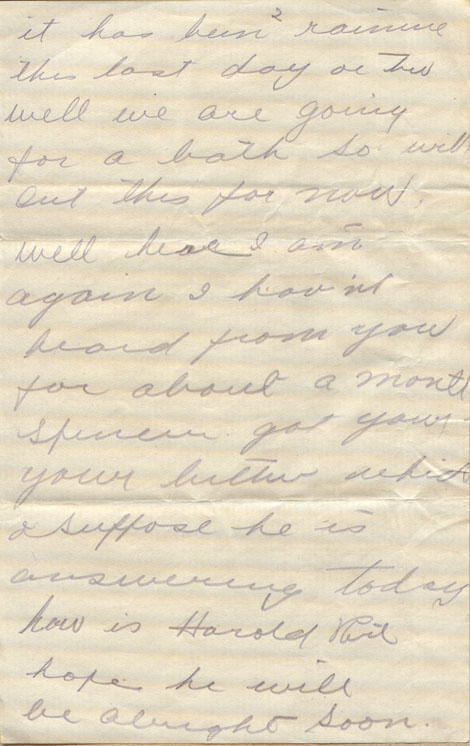 it has been 2 raining
this last day or two
well we are going
for a bath so will
cut this for now.
well hear I am
again I hav'nt
heard from you
for about a month
Spencer got your
your letter which
I suppose he is
answering today
how is Harold
hope he will
be alright soon.